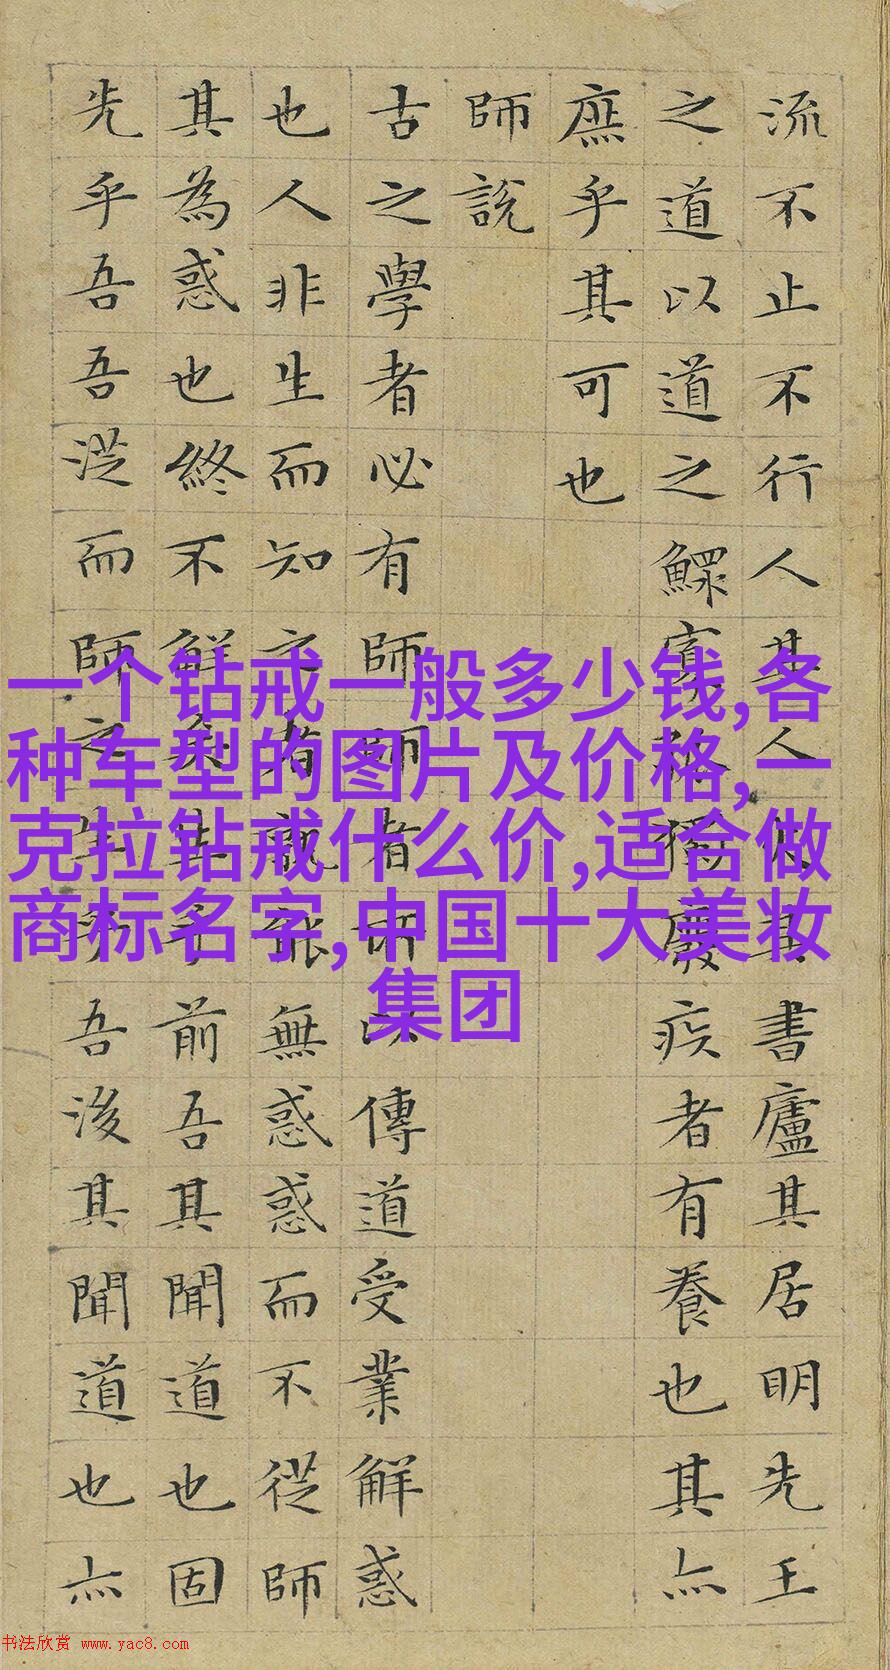 流不止不行人其人火其書廬其居明先王
之道以道之鰥寡孤獨廢疾者有養也其亦
庶乎其可也
師說
古之學者必有師師者所以傳道受業解惑
也人非生而知之者孰能無惑惑而不從師
其為惑也終不解矣生乎前吾其聞道也固
先乎吾吾從而師之生乎吾後其聞道也亦
一个钻戒一般多少钱,各
种车型的图片及价格,一
克拉钻戒什么价,适合做
商标名字,中国十大美妆
集团
书法欣赏 www.yac8.com